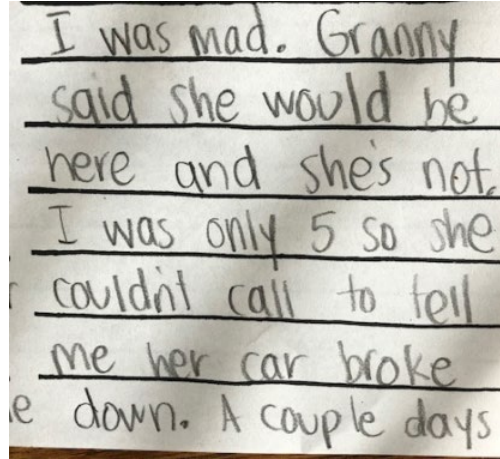 I was mad. Granny
said she would be
here and she's not.
I was only 5 so she
couldn't call to tell
me her car broke
e down. A couple days